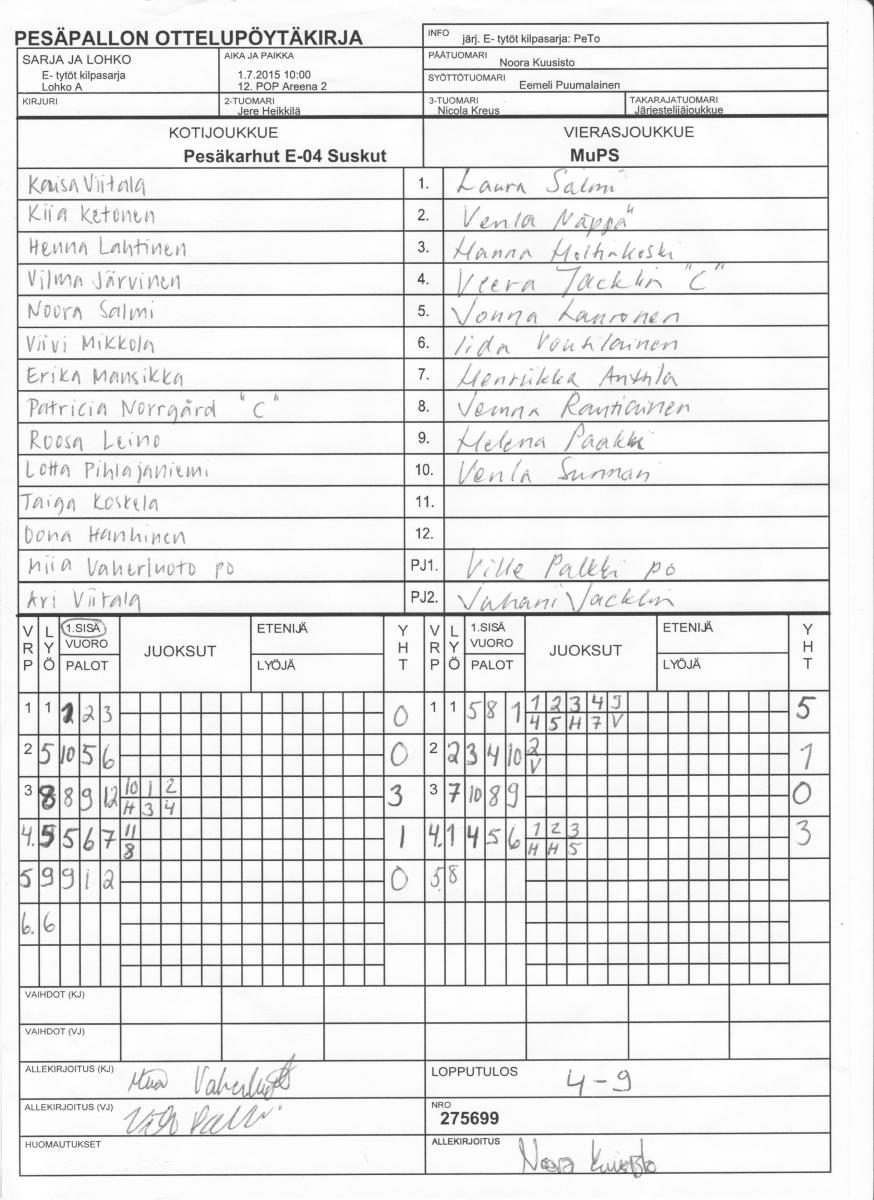 PESÄPALLON OTTELUPÖYTÄKIRJA
INFO järj. E- tytöt kilpasarja: PeTo
SARJA JA LOHKO
E- tytöt kilpasarja
Lohko A
AIKA JA PAIKKA
1.7.2015 10:00
12. POP Areena 2
PÄÄTUOMARI Noora Kuusisto
SYÖTTÖTUOMARI Eemeli Puumalainen
KIRJURI
2-TUOMARI
Jere Heikkilä
3-TUOMARI
Nicola Kreus
TAKARAJATUOMARI
Järjestelijäjoukkue
KOTIJOUKKUE VIERASJOUKKUE
Pesäkarhut E-04 Suskut MuPS
Kaisa Viitala 1. Laura Salmi
Kiia Ketonen 2. Venla Näppä
Henna Lahtinen 3. Hanna
Vilma Järvinen 4. Veera Jacklin "C"
Noora Salmi 5. Jonna Lauronen
Viivi Mikkola 6. Iida Voutilainen
Erika Mansikka 7. Henriikka Anttila
Patricia Norrgård "C" 8. Jemna Rantiainen
Roosa Leino 9. Helena Paakki
Lotta Pihlajaniemi 10. Venla Sunnari
Taiga Koskela 11.
Oona Hanhinen 12.
Miia Vaherluoto po PJ1. Ville Palkki po
Ari Viitala PJ2. Juhani Jacklin
VRP LYÖ 1.SISÄ VUORO PALOT JUOKSUT ETENIJÄ LYÖJÄ YHT VRP LYÖ 1.SISÄ VUORO PALOT JUOKSUT ETENIJÄ LYÖJÄ YHT
1 1 1 2 3 0 1 1 5 8 1 1 2 3 4 9 5
4 5 H 7 V
2 5 10 5 6 0 2 2 3 4 10 2 1
V
3 8 8 9 12 10 1 2 3 3 7 10 8 9 0
H 3 4
4. 5 5 6 7 11 1 4. 1 4 5 6 1 2 3 3
8 H H 5
5 9 9 1 2 0 5. 8
6. 6
VAIHDOT (KJ)
VAIHDOT (VJ)
ALLEKIRJOITUS (KJ) Miia Vaherluoto LOPPUTULOS 4-9
ALLEKIRJOITUS (VJ) Ville Palkki NRO
275699
HUOMAUTUKSET ALLEKIRJOITUS Noora Kuusisto